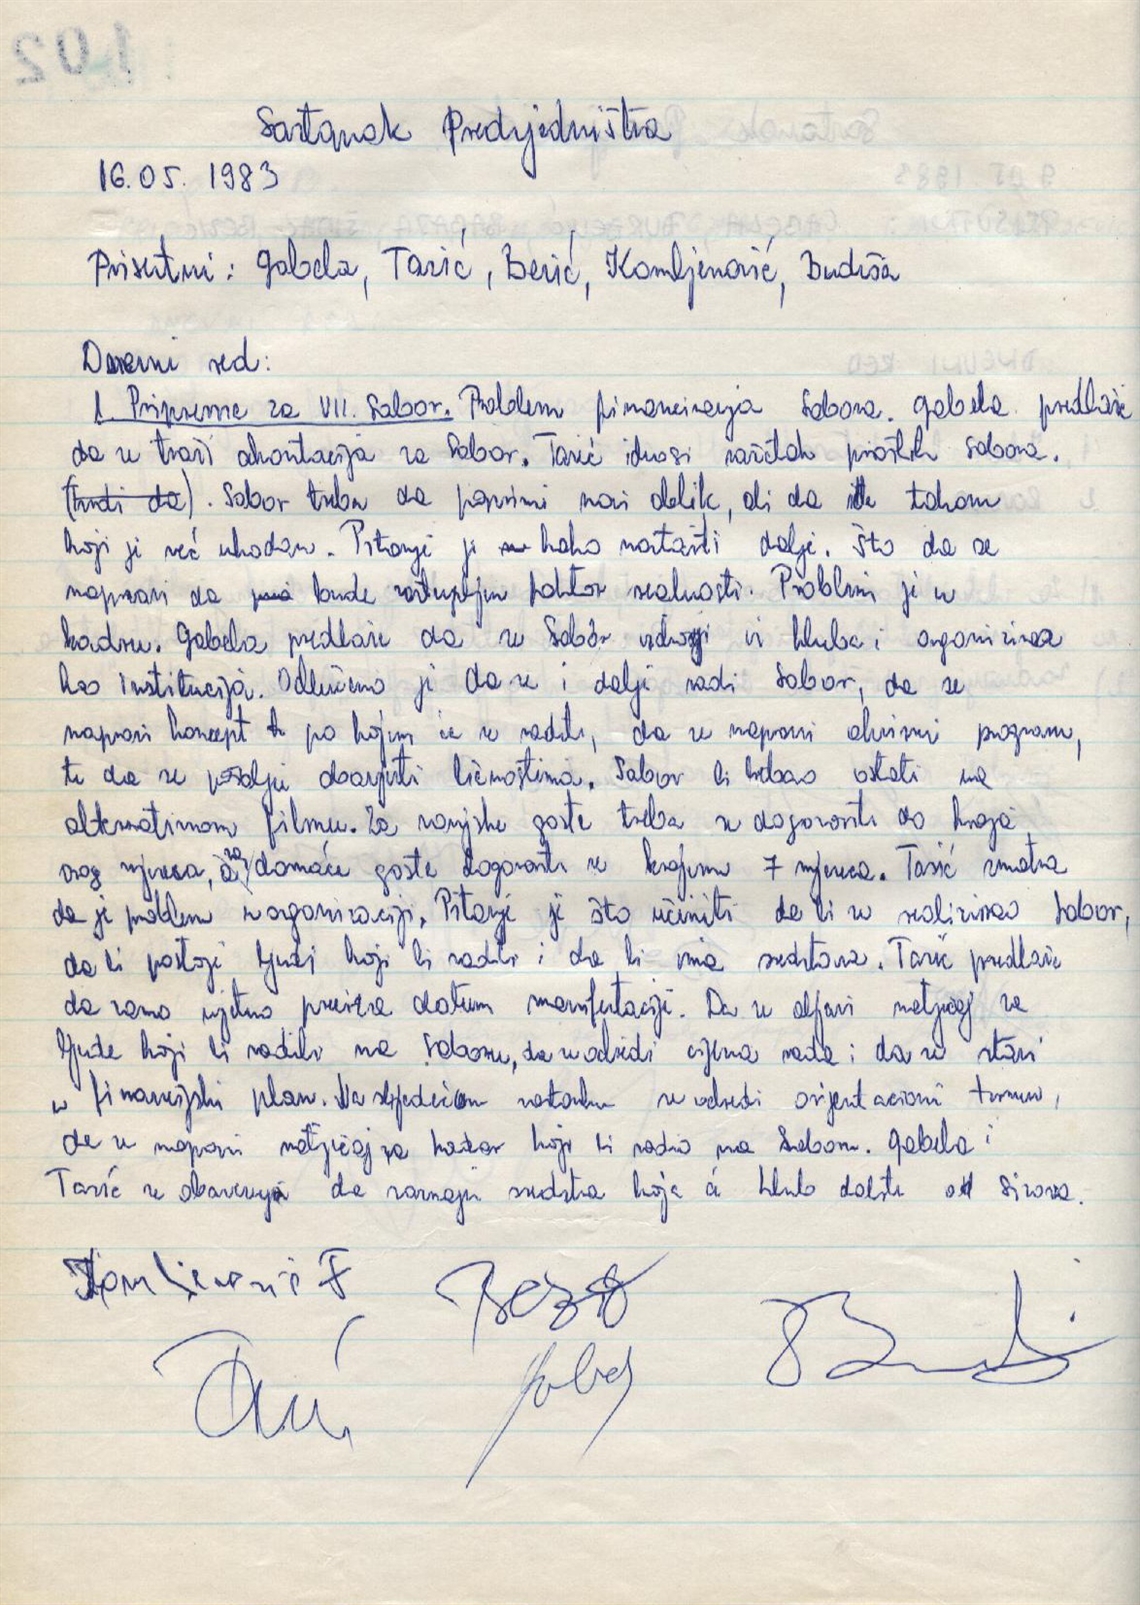 Sastanak Predsjedništva
16.05. 1983
Prisutni: Gabela, Tarić, Berić, Komljenović, Budiša
Dnevni red:
1. Pripreme za VII. Sabor. Problem financiranja Sabora. Gabela predlaže
da se traži akontacija za Sabor. Tarić iznosi način prošlih Sabora.
Sabor treba da poprimi novi oblik, ali da ide tokom
koji je već uhodan. Pitanje je kako nastaviti dalje. Što da se
napravi da bude zastupljen faktor realnosti. Problem je u
kadru. Gabela predlaže da se Sabor izdvoji iz kluba i organizira
kao institucija. Odlučeno je da se i dalje radi Sabor, da se
napravi koncept po kojem će se raditi, da se napravi okvirni program,
te da se pošalju dopisi ličnostima. Sabor bi trebao ostati na
alternativnom filmu. Za vanjske goste treba se dogovoriti do kraja
ovog mjeseca, a za domaće goste dogovoriti se krajem 7 mjeseca. Tarić smatra
da je problem u organizaciji. Pitanje je što učiniti da bi se realizirao Sabor,
da li postoje ljudi koji bi radili i da li ima sredstava. Tarić predlaže
da datum manifestacije. Da se objavi natječaj za
ljude koji bi radili na Saboru, da se odredi cijena rada i da se stavi
u financijski plan. Na slijedećem sastanku se odredi orijentacioni termin,
da se napravi natječaj za kadar koji bi radio na Saboru. Gabela i
Tarić se obavezuju da saznaju sredstva koja će klub dobiti od Sizova.
Komljenović F
Berić
Tarić
Gabel